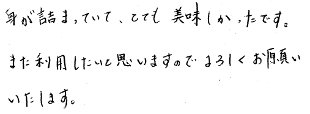 身が詰まっていて、とても美味しかったです。
また利用したいと思いますのでよろしくお願い
いたします。